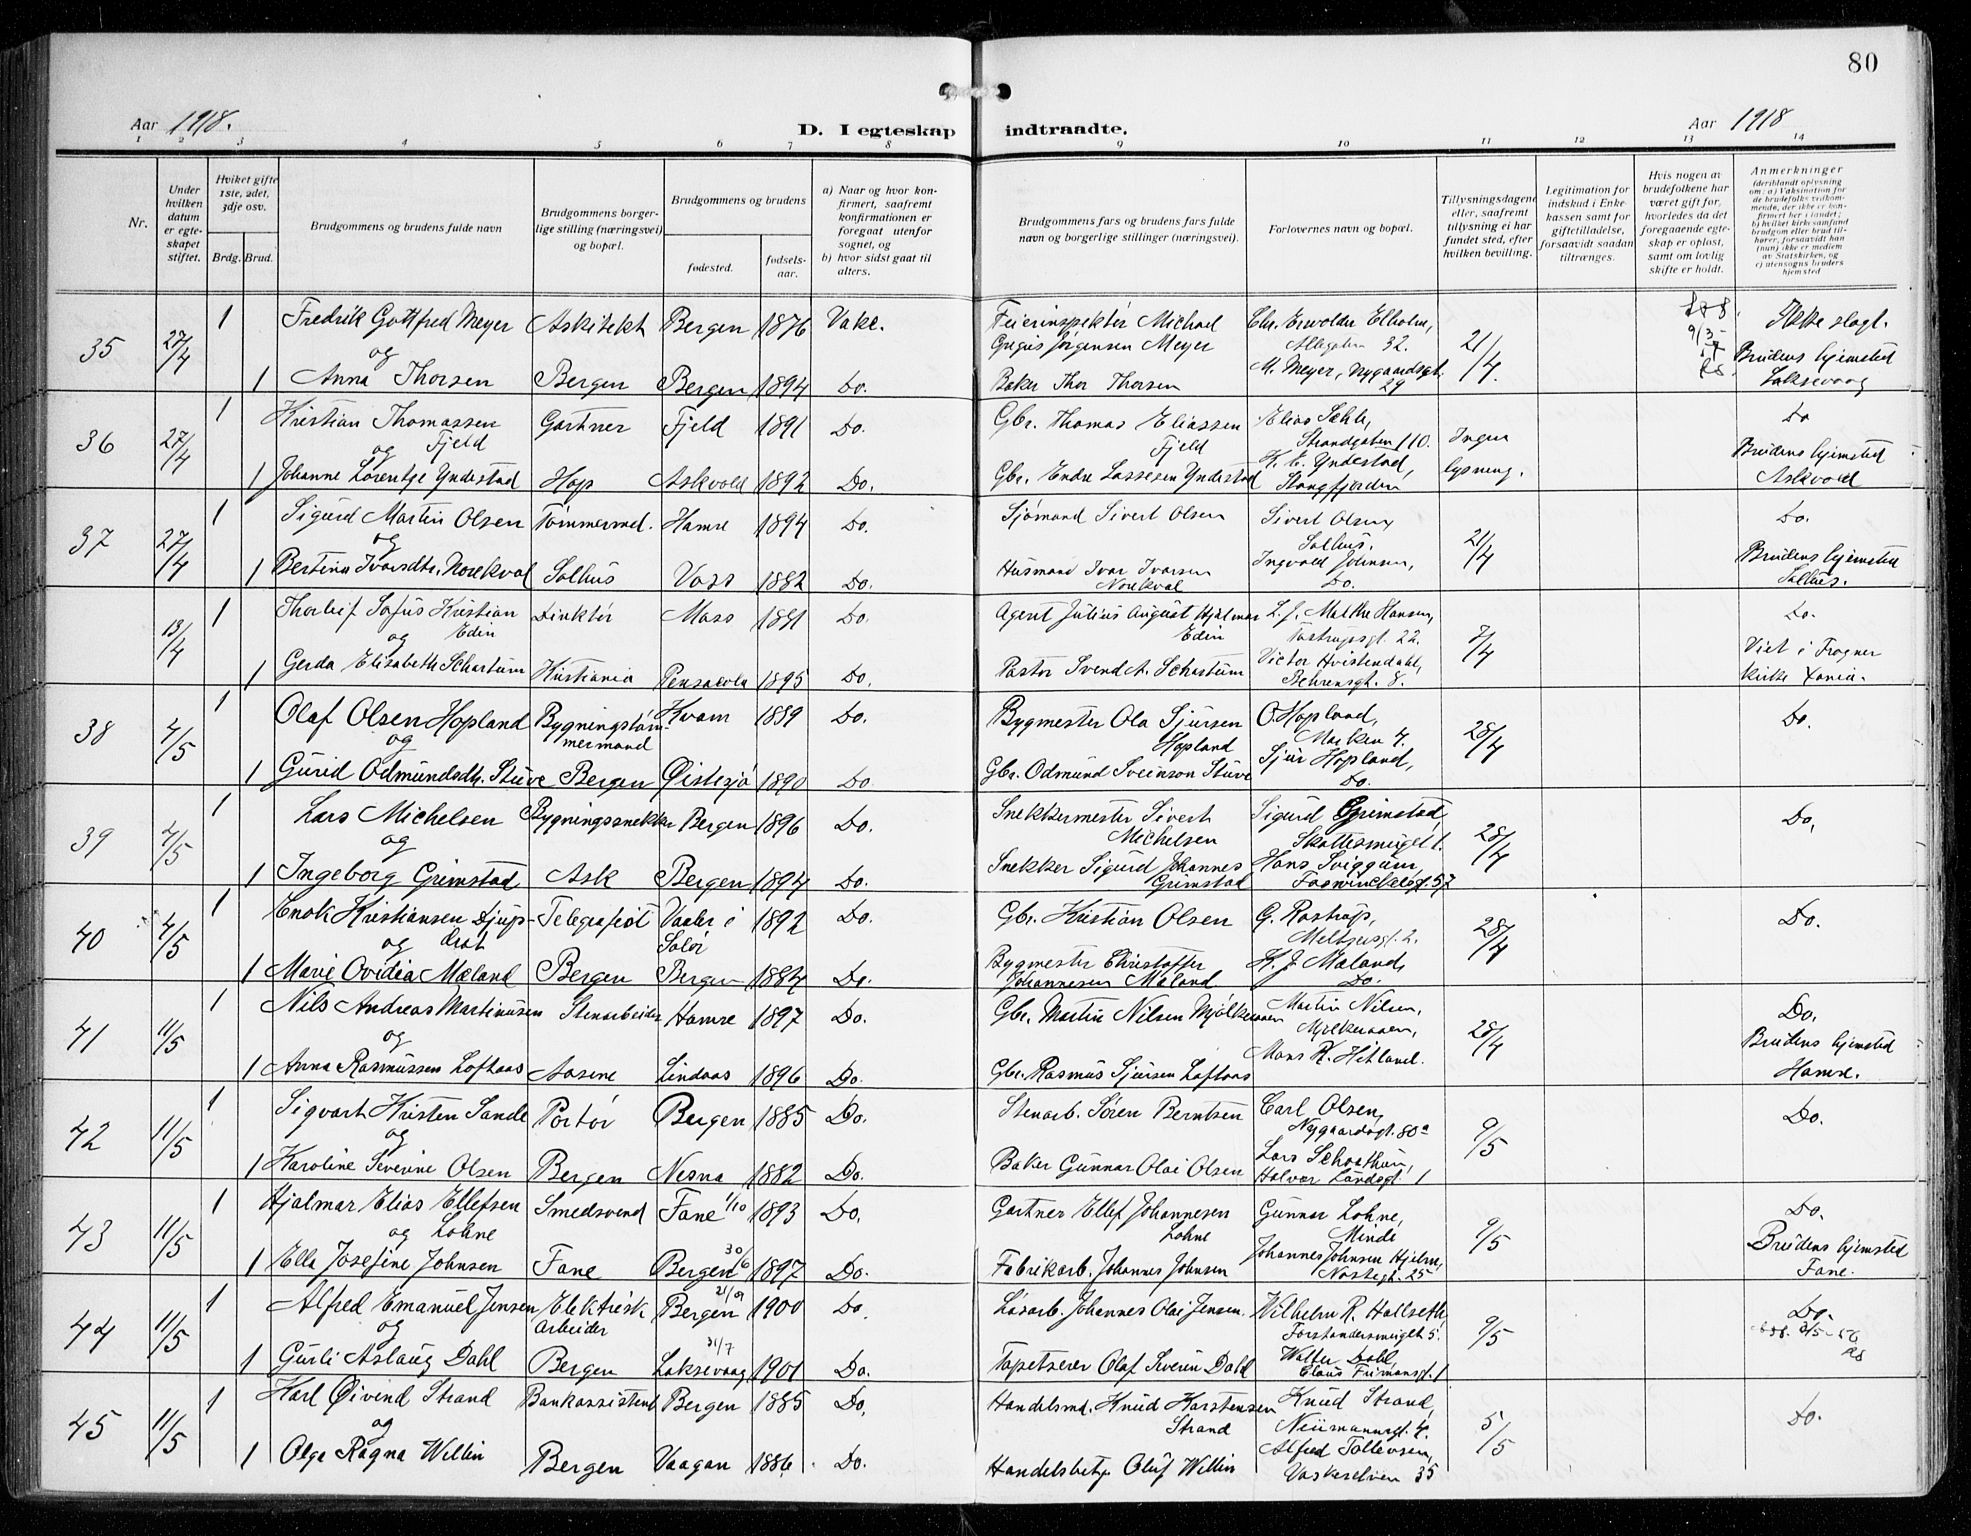 80
Aar 1918.
D. I egteskap indtraadte.
Aar 1918
1 2 3 4 5 6 7 8 9 10 11 12 13 14
Nr.
Under hvilken datum er egteskapet stiftet.
Hvilket gifte 1ste, 2det, 3dje osv.
Brdg. Brud.
Brudgommens og brudens fulde navn
Brudgommens borgerlige stilling (næringsvei) og bopæl.
Brudgommens og brudens
fødested.
fødselsaar.
a) Naar og hvor konfirmert, saafremt konfirmationen er foregaat utenfor sognet, og
b) hvor sidst gaat til alters.
Brudgommens fars og brudens fars fulde navn og borgerlige stillinger (næringsvei).
Forlovernes navn og bopæl.
Tillysningsdagene eller, saafremt tillysning ei har fundet sted, efter hvilken bevilling.
Legitimation for indskud i Enkekassen samt for giftetilladelse, forsaavidt saadan tiltrænges.
Hvis nogen av brudefolkene har været gift før, hvorledes da det foregaaende egteskap er opløst, samt om lovlig skifte er holdt.
Anmerkninger
35 27/4 1 Fredrik Gottfred Meyer Arkitekt Bergen 1876 Vake. Feierinspektør Michael Gregus Jørgensen Meyer Allégaten 32. 21/4. Ikke slegt.
og
1 Anna Thorsen Bergen Bergen 1894 Do. Baker Thor Thorsen M. Meyer, Nygaardsgt. 29 Brudens hjemsted Laksevaag
36 27/4 1 Kristian Thomassen Fjeld Gartner Fjeld 1891 Do. Gbr. Thomas Eliassen Fjeld Strandgaten 110. Ingen lysning. Do
og
1 Johanne Lorentze Yndestad Hop Askvold 1892 Do. Gbr. Endre Lassesen Yndestad Yndestad, Stangfjorden Brudens hjemsted Askvold
37 27/4 1 Sigurd Martin Olsen Tømmermd. Hamre 1894 Do. Sjømand Sivert Olsen Sivert Olsen, Salhus. 21/4 Do.
og
1 Bertina Ivarsdtr. Norekval Salhus Voss 1882 Do. Husmand Ivar Ivarsen Norekval Ingvald Johnsen, Do. Brudens hjemsted Salhus.
13/4 1 Thorleif Sofus Kristian Edin Direktør Moss 1881 Do. Agent Julius August Hjalmar Edin L. J. Malthe Hansen, Tostrupsgt. 22. 7/4 Do.
og
1 Gerda Elisabeth Schartum Kristiania Pensacola 1895 Do. Pastor Svend A. Schartum Victor Hvistendahl, Behrensgt. 8. Viet i Frogner kirke Xania.
38 4/5 1 Olaf Olsen Hopland Bygningstømmermand Kvam 1889 Do. Bygmester Ola Sjursen Hopland O. Hopland, Marken 4. 28/4 Do.
og
1 Gurid Odmundsdtr. Stuve Bergen Øistesjø 1890 Do. Gbr. Odmund Sveinson Stuve Sjur Hopland, Do.
39 4/5 1 Lars Michelsen Bygningssnekker Bergen 1896 Do. Snekkermester Sivert Michelsen Sigurd Grimstad, Skottesmuget 1. 28/4 Do.
og
1 Ingeborg Grimstad Ask Bergen 1894 Do. Snekker Sigurd Johannes Grimstad Hans Sviggum, Foswinckelsgt. 57
40 4/5 1 Enok Kristiansen Djupdræt Telegrafist Vaaler i Solør 1892 Do. Gbr. Kristian Olsen G. Rostrup, Meltzersgt. 2. 28/4 Do.
og
1 Marie Ovidia Mæland Bergen Bergen 1884 Do. Bygmester Christoffer Johannesen Mæland H. J. Mæland, Do.
41 11/5 1 Nils Andreas Martinusen Stenarbeider Hamre 1897 Do. Gbr. Martin Nilsen Mjølkeraaen Martin Nilsen, Mjølkeraaen, 28/4 Do.
og
1 Anna Rasmussen Loftaas Aasene Lindaas 1896 Do. Gbr. Rasmus Sjursen Loftaas Mons R. Hitland. Brudens hjemsted Hamre.
42 11/5 1 Sigvart Kristen Sande Portør Bergen 1885 Do. Stenarb. Søren Berntsen Carl Olsen, Nygaardsgt. 80a 9/5 Do.
og
1 Karoline Severine Olsen Bergen Nesna 1882 Do. Baker Gunnar Olai Olsen Lars Schrøthun, Halvor Landsgt. 1
43 11/5 1 Hjalmar Elias Ellefsen Lohne Smedsvend Fane 1/10 1893 Do. Gartner Ellef Johannesen Lohne Gunnar Lohne, Minde 9/5 Do.
og
1 Ella Josefine Johnsen Fane Bergen 30/6 1897 Do. Fabrikarb. Johannes Johnsen Johannes Johnsen Hjelm, Nøstegt. 25 Brudens hjemsted Fane.
44 11/5 1 Alfred Emanuel Jensen Elektrisk Arbeider Bergen 1900 Do. Løsarb. Johannes Olai Jensen. Wilhelm R. Hallseth, Forstandersmuget 5. 9/5 Do.
og
1 Gurli Aslaug Dahl Bergen Laksevaag 31/7 1901 Do. Tapetserer Olaf Severin Dahl Walter Dahl, Claus Frimansgt. 1
45 11/5 1 Karl Øivind Strand Bankassistent Bergen 1885 Do. Handelsmd. Knud Karstensen Strand Knud Strand, Neumannsgt. 4. 5/5 Do.
og
1 Olga Ragna Willin Bergen Vaagan 1886 Do. Handelsbetj. Oluf Willin Alfred Tollevsen, Vaskerelven 35